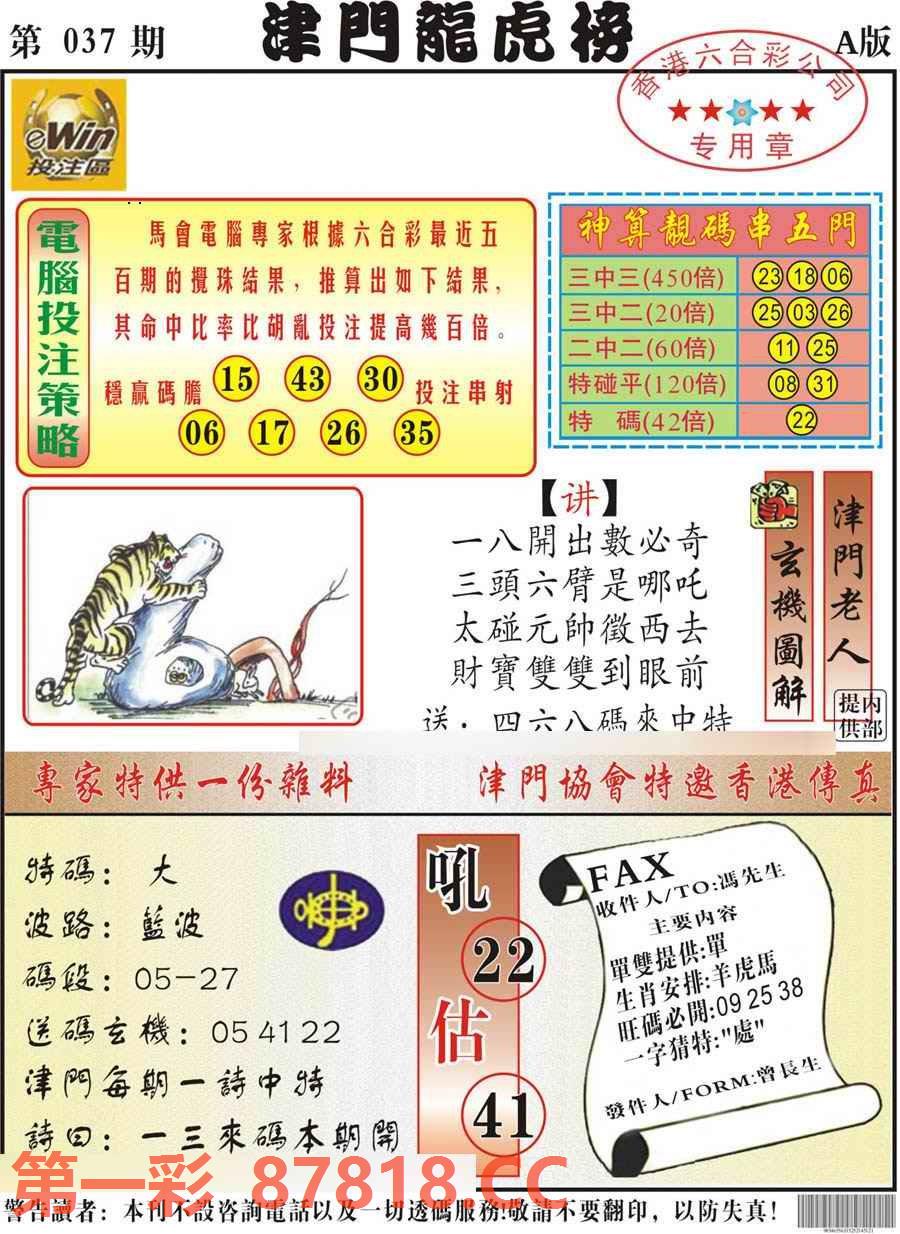 第 037 期
津門龍虎榜
A版
香港六合彩公司
专用章
eWin
投注區
電腦投注策略
馬會電腦專家根據六合彩最近五
百期的攪珠結果，推算出如下結果，
其命中比率比胡亂投注提高幾百倍。
穩贏碼膽 15 43 30 投注串射
06 17 26 35
神算靚碼串五門
三中三(450倍) 23 18 06
三中二(20倍) 25 03 26
二中二(60倍) 11 25
特碰平(120倍) 08 31
特 碼(42倍) 22
【讲】
一八開出數必奇
三頭六臂是哪吒
太碰元帥徵西去
財寶雙雙到眼前
送：四六八碼來中特
玄機圖解
津門老人
内部提供
專家特供一份雜料
津門協會特邀香港傳真
特碼：大
波路：藍波
碼段：05-27
送碼玄機：05 41 22
津門每期一詩中特
詩曰：一三來碼本期開
吼
22
估
41
FAX
收件人/TO:馮先生
主要内容
單雙提供:單
生肖安排:羊虎馬
旺碼必開:09 25 38
一字猜特:"處"
發件人/FORM:曾長生
第一彩 87818.CC
警告讀者：本刊不設咨詢電話以及一切透碼服務!敬請不要翻印，以防失真！